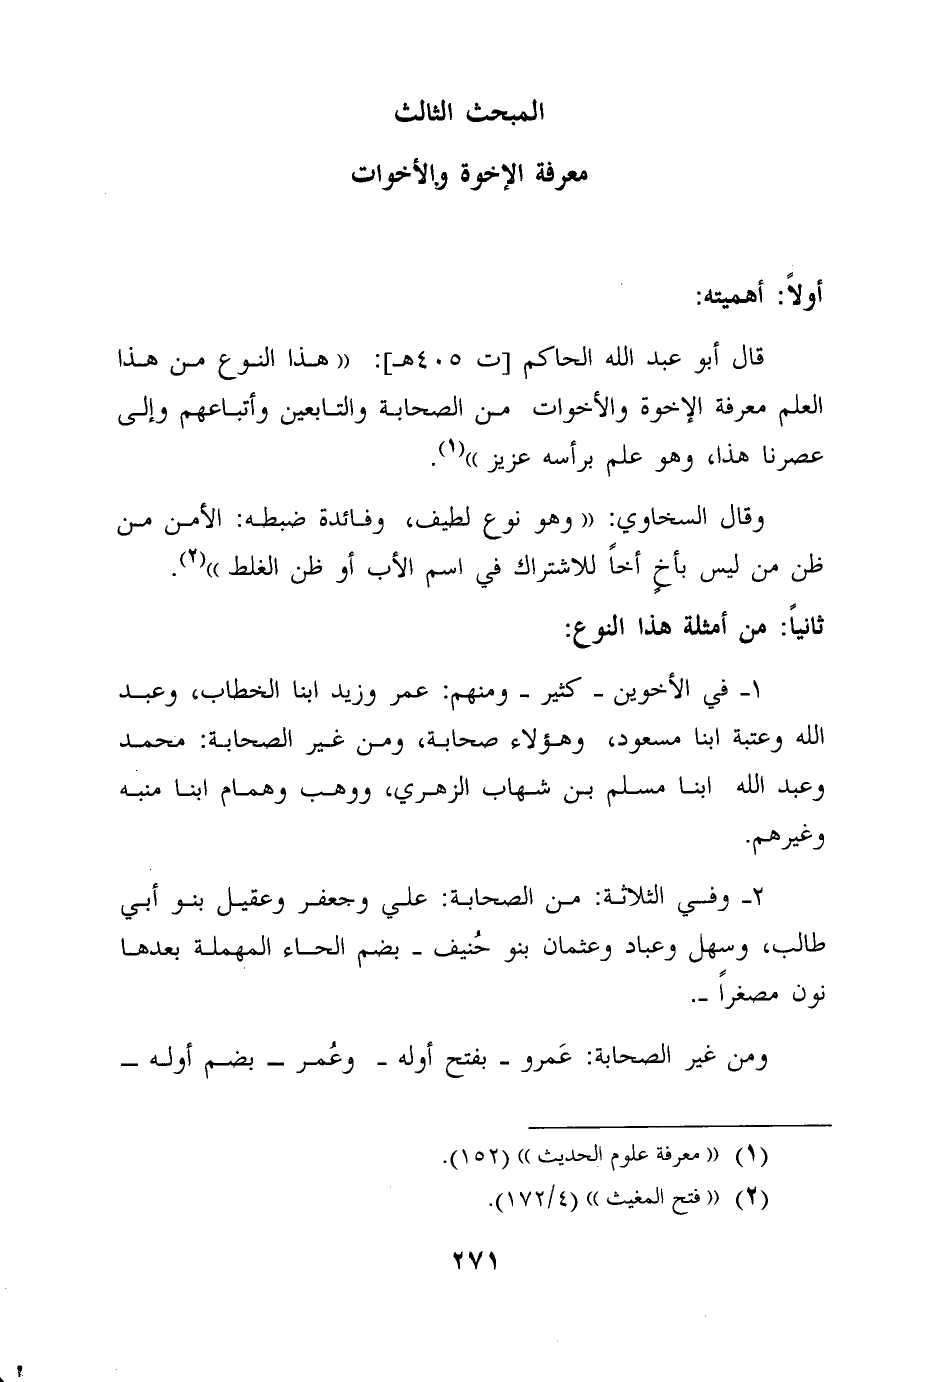 المبحث الثالث
معرفة الإخوة والأخوات
أولاً: أهميته:
قال أبو عبد الله الحاكم [ت ٤٠٥هـ]: (( هـذا النوع مـن هـذا
العلم معرفة الإخوة والأخوات مـن الصحابـة والتـابعين وأتبـاعهم وإلى
عصرنا هذا، وهو علم برأسه عزيز ))(١).
وقال السخاوي: (( وهو نوع لطيف، وفـائدة ضبطـه: الأمـن مـن
ظن من ليس بأخٍ أخاً للاشتراك في اسم الأب أو ظن الغلط ))(٢).
ثانياً: من أمثلة هذا النوع:
١- في الأخوين - كثير - ومنهم: عمر وزيد ابنا الخطاب، وعبـد
الله وعتبة ابنا مسعود، وهـؤلاء صحابـة، ومـن غـير الصحابـة: محمـد
وعبد الله ابنـا مسـلم بـن شـهاب الزهـري، ووهـب وهمـام ابنـا منبـه
وغيرهم.
٢- وفـي الثلاثـة: مـن الصحابـة: علـي وجعفـر وعقيـل بنـو أبـي
طالب، وسهل وعباد وعثمان بنو حُنيف - بضم الحـاء المهملـة بعدهـا
نون مصغراً -.
ومن غير الصحابة: عَمرو - بفتح أوله - وعُمـر - بضـم أولـه -
(١) (( معرفة علوم الحديث )) (١٥٢).
(٢) (( فتح المغيث )) (١٧٢/٤).
٢٧١